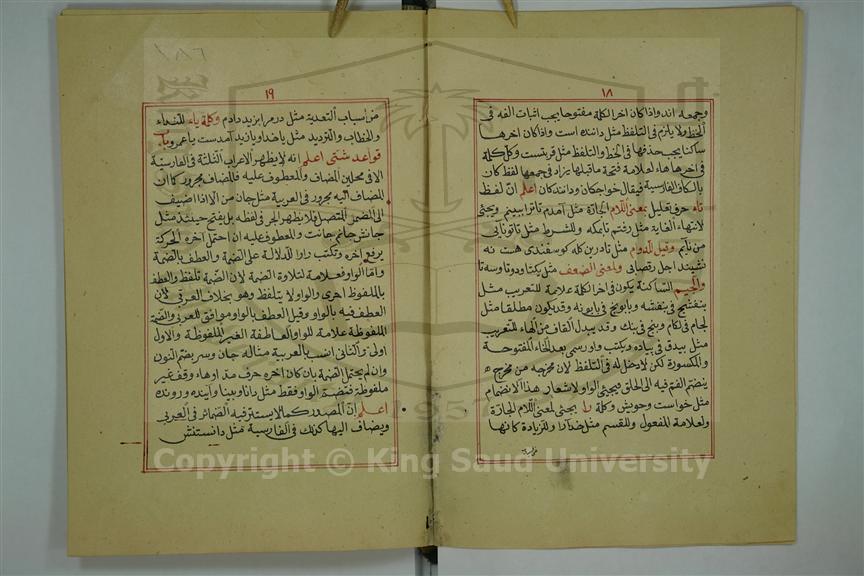 ١٨
وجمعه اند واذا كان اخر الكلمة مفتوحا يجب اثبات الفه فى
الخط ولا يلزم فى التلفظ مثل داننده است واذا كان اخرها
ساكنا يجب حذفها فى الخط والتلفظ مثل قربتست وكل كلمة
فى اخرها هاء لعلامة فتحة ما قبلها يزاد فى جمعها لفظ كان
بالكاف الفارسية فيقال خواجكان ودانندكان اعلم ان لفظ
تاء حرف تعليل بمعنى اللام الجازة مثل آمدم تا ترا ببينم ويجئ
لانتهاء الغاية مثل رفتم تا بمكه وللشرط مثل تا تو نآيى
من نآيم وقيل للدوام مثل تا در بن كله كوسفندى هست نه
نشيند اجل رقصابى ولمعنى الضعف مثل يكتا ودوتا وسه تا
والجيم الساكنة يكون فى اخر الكلمة علامة للتعريب مثل
بنفشج فى بنفشه وبابونج فى بابونه وقد يكون مطلقا مثل
لجام فى لكام وبنج فى بنك وقد يبدل القاف من الهاء للتعريب
مثل بيدق فى پياده ويكتب واو رسمى بعد الخاء المفتوحة
والمكسورة لكن لا تدخل له فى التلفظ لان مخرجه من مخرج
ينضم الفم فيه الى الحلق فيجئ الواو لاشعار هذا الانضمام
مثل خواست وخويش وكلمة را يجئ لمعنى اللام الجازة
ولعلامة المفعول وللقسم مثل خدآرا وللزيادة كانها
١٩
من اسباب التعدية مثل درمرا بزيد دادم وكلمة ياء للنداء
والخطاب والترديد مثل يا خدا ويا زيد آمدست يا عمرو باب
قواعد شتى اعلم انه لا يظهر الاعراب الثلثة فى الفارسية
الا فى محلين المضاف والمعطوف عليه فالمضاف مجرور كما ان
المضاف اليه مجرور فى العربية مثل جان من الا اذا اضيف
الى الضمير المتصل فلا يظهر الجر فى لفظه بل يفتح حينئذ مثل
جانش جانم جانت والمعطوف عليه ان احتمل آخره الحركة
يرفع آخره وتكتب رارا للدلالة على الضمة والعطف بالضمة
واما الواو فعلامة لتلاوة الضمة لان الضمة تلفظ والعطف
بالملفوظ احرى والواو لا يتلفظ وهو بخلاف العربى لان
العطف فيه بالواو وقيل العطف بالواو موافق للعربى والضمة
الملفوظة علامة للواو العاطفة الغير الملفوظة والاول
اولى والثانى انسب بالعربية مثاله جان وسر بضم النون
وان لم يحتمل الضمة بان كان آخره حرف مد او هاء وقف غير
ملفوظة فتضمة الواو فقط مثل دانا وبينا وآينده ورونده
اعلم ان المصدر كما لا يستتر فيه الضمائر فى العربى
ويضاف اليها كذلك فى الفارسية مثل دانستنش
Copyright © King Saud University
1957